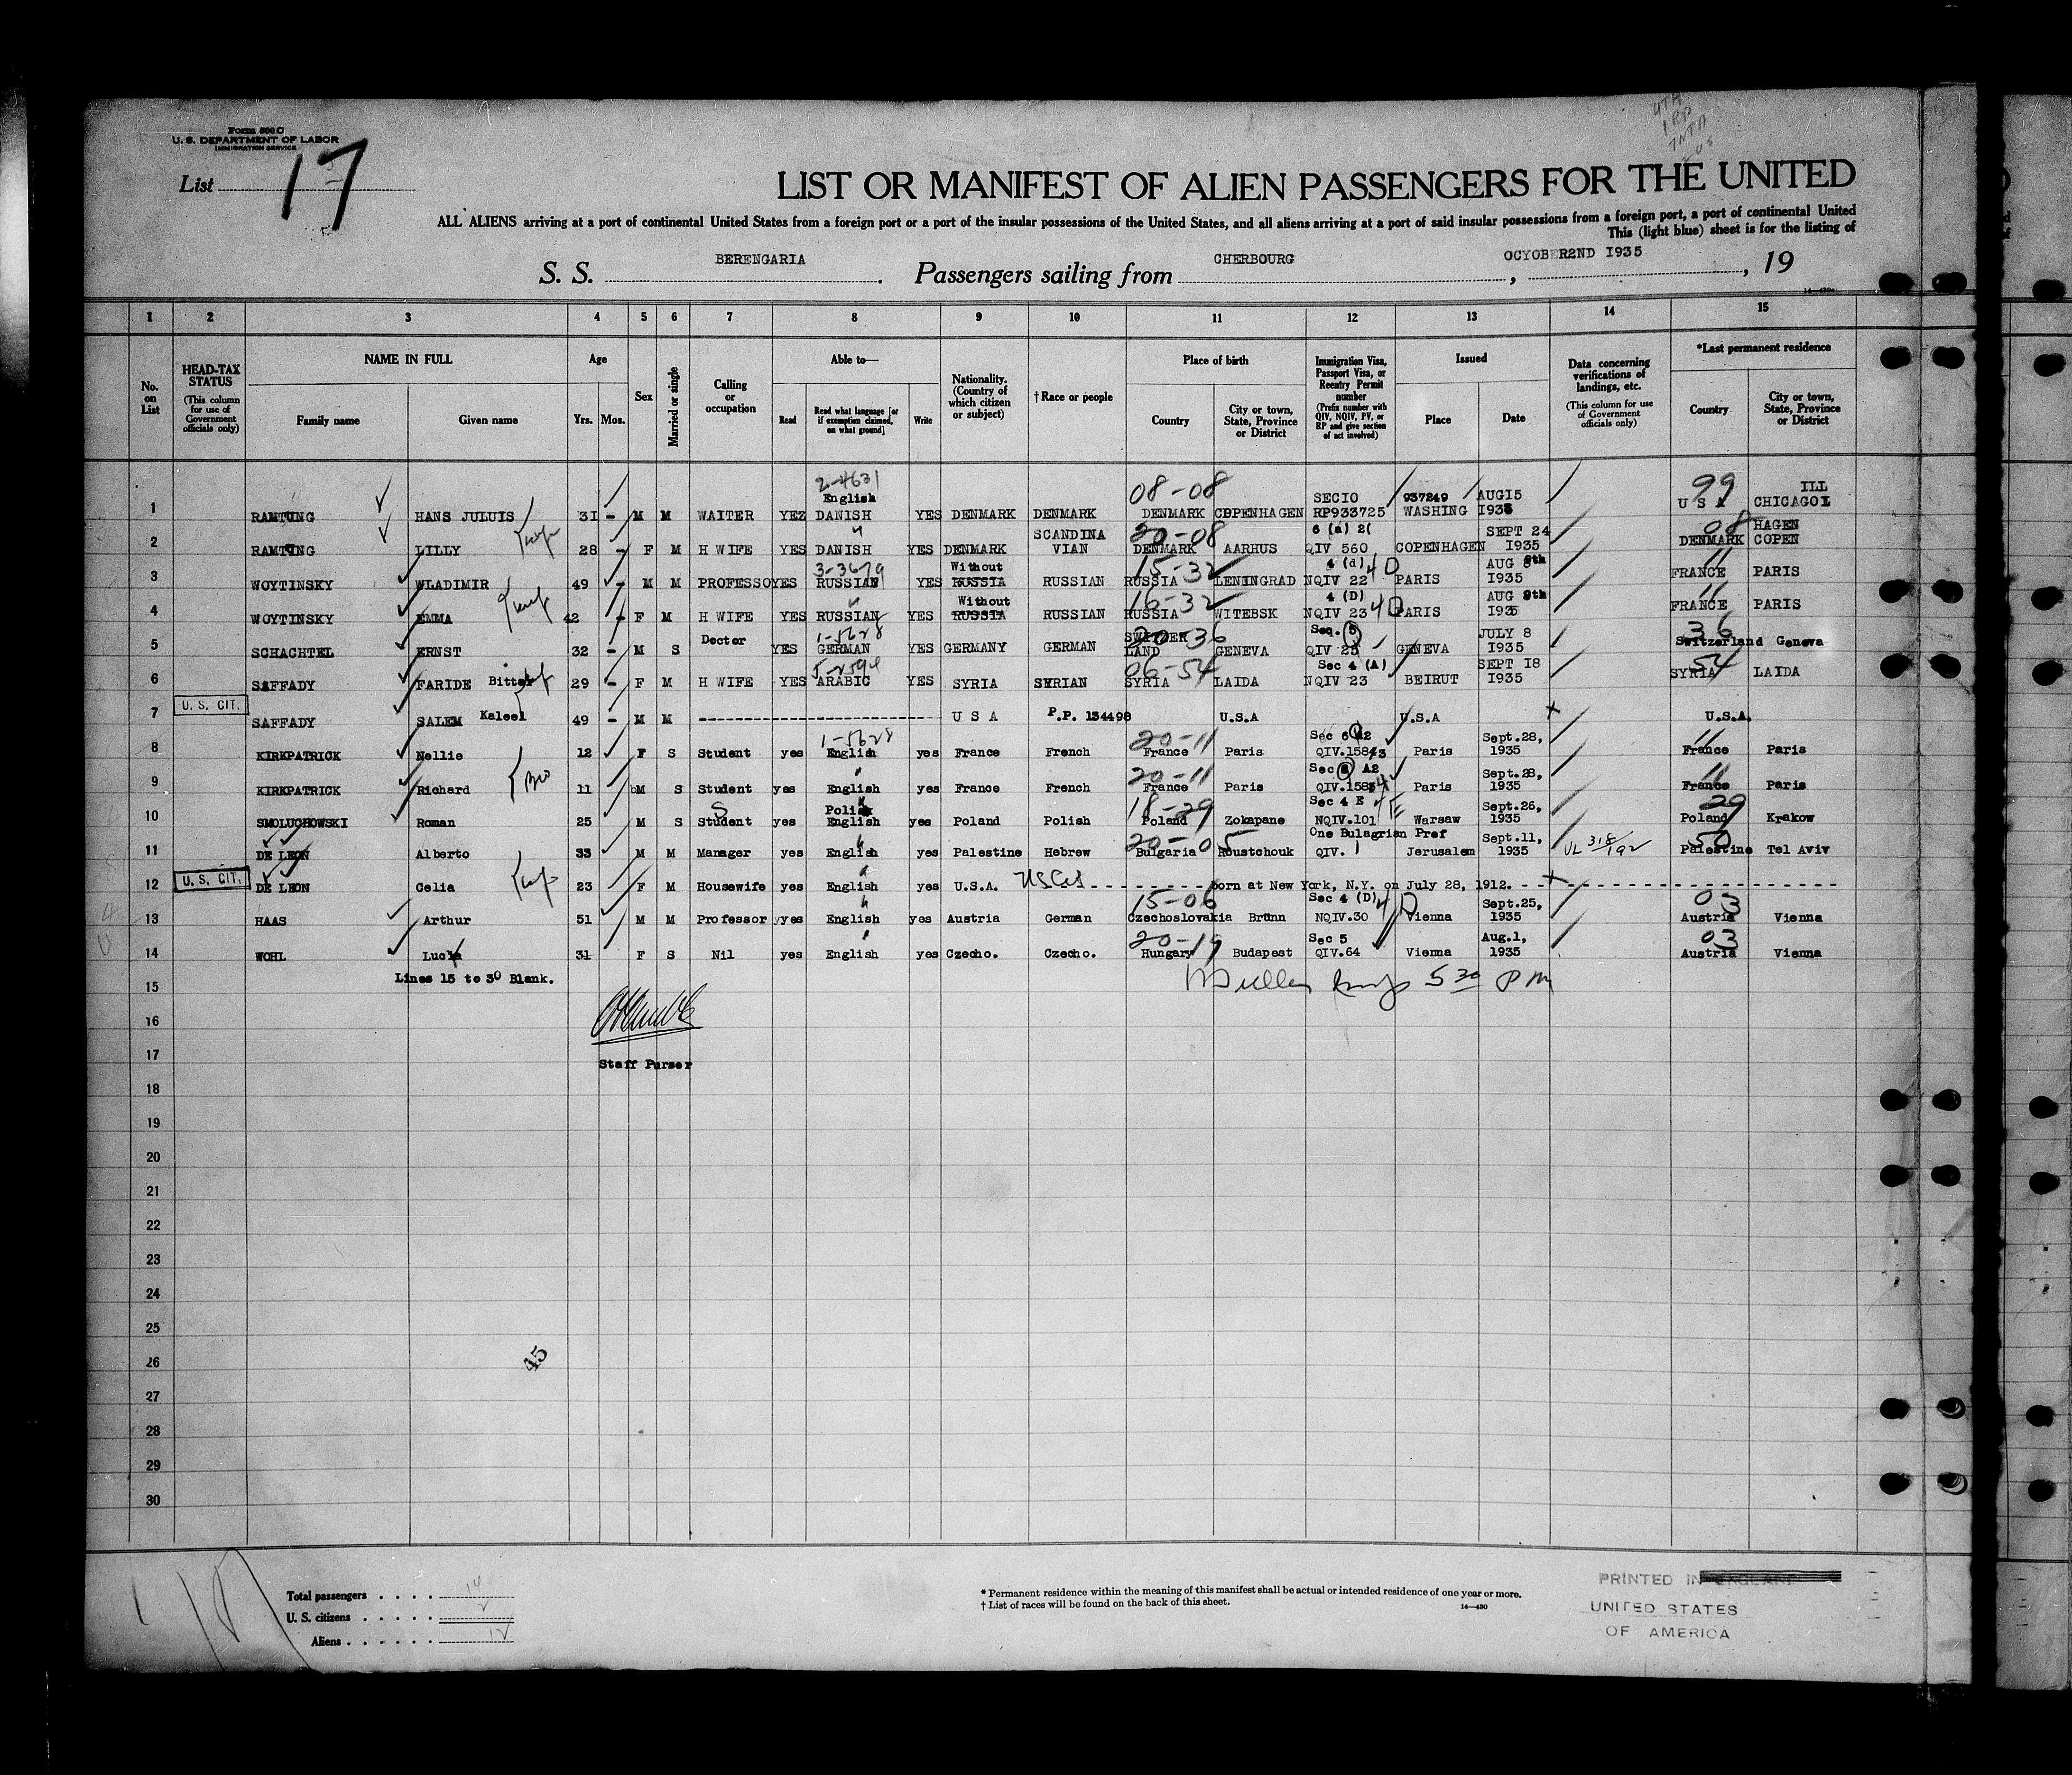 Form 500 C
U. S. DEPARTMENT OF LABOR
IMMIGRATION SERVICE
List 17
LIST OR MANIFEST OF ALIEN PASSENGERS FOR THE UNITED
ALL ALIENS arriving at a port of continental United States from a foreign port or a port of the insular possessions of the United States, and all aliens arriving at a port of said insular possessions from a foreign port, a port of continental United
This (light blue) sheet is for the listing of
S. S. BERENGARIA. Passengers sailing from CHERBOURG, OCYOBER2ND I935, 19
1 2 3 4 5 6 7 8 9 10 11 12 13 14 15
No. on List
HEAD-TAX STATUS (This column for use of Government officials only)
NAME IN FULL Family name Given name
Age Yrs. Mos.
Sex
Married or single
Calling or occupation
Able to— Read Read what language [or if exemption claimed, on what ground] Write
Nationality. (Country of which citizen or subject)
†Race or people
Place of birth Country City or town, State, Province or District
Immigration Visa, Passport Visa, or Reentry Permit number (Prefix number with QIV, NQIV, PV, or RP and give section of act involved)
Issued Place Date
Data concerning verifications of landings, etc. (This column for use of Government officials only)
*Last permanent residence Country City or town, State, Province or District
2-4631 08-08 99 ILL
English SECIO 937249 AUGI5
1 RAMTUNG HANS JULUIS 3I - M M WAITER YEZ DANISH YES DENMARK DENMARK DENMARK COPENHAGEN RP933725 WASHING I935 U S A CHICAGOI
SCANDINA 20-08 6 (a) 2( SEPT 24 08 HAGEN
2 RAMTUNG LILLY wife 28 - F M H WIFE YES DANISH YES DENMARK VIAN DENMARK AARHUS QIV 560 COPENHAGEN I935 DENMARK COPEN
3-3679 Without 15-32 4 (d) 4D AUG 8th 11
3 WOYTINSKY WLADIMIR 49 - M M PROFESSO YES RUSSIAN YES RUSSIA RUSSIAN RUSSIA LENINGRAD NQIV 22 PARIS I935 FRANCE PARIS
Without 16-32 4 (D) 4D AUG 8th 11
4 WOYTINSKY EMMA wife 42 - F M H WIFE YES RUSSIAN YES RUSSIA RUSSIAN RUSSIA WITEBSK NQIV 23 PARIS I935 FRANCE PARIS
Doctor 1-5628 SWITZER 20-36 Seq. 5 JULY 8 36
5 SCHACHTEL ERNST 32 - M S YES GERMAN YES GERMANY GERMAN LAND GENEVA QIV 25 GENEVA I935 Switzerland Geneva
5-2594 06-54 Sec 4 (A) SEPT I8 54
6 SAFFADY FARIDE Bittar 29 - F M H WIFE YES ARABIC YES SYRIA SYRIAN SYRIA LAIDA NQIV 23 BEIRUT I935 SYRIA LAIDA
U. S. CIT.
7 SAFFADY SALEM Kaleel 49 - M M U S A P.P. 134498 U.S.A U.S.A U.S.A.
1-5628 20-11 Sec 6 A2 Sept.28, 11
8 KIRKPATRICK Nellie 12 F S Student yes English yes France French France Paris QIV.1583 Paris 1935 France Paris
20-11 Sec 6 A2 Sept.28, 11
9 KIRKPATRICK Richard Bro 11 M S Student yes English yes France French France Paris QIV.1584 Paris 1935 France Paris
S Polish 18-29 Sec 4 E 4E Sept.26, 29
10 SMOLUCHOWSKI Roman 25 M S Student yes English yes Poland Polish Poland Zokapane NQIV.101 Warsaw 1935 Poland Krakow
20-05 One Bulagrian Pref Sept.11, 50
11 DE LEON Alberto 33 M M Manager yes English yes Palestine Hebrew Bulgaria Roustchouk QIV. 1 Jerusalem 1935 VL 318/192 Palestine Tel Aviv
U. S. CIT.
12 DE LEON Celia wife 23 F M Housewife yes English yes U.S.A. born at New York, N.Y. on July 28, 1912.
15-06 Sec 4 (D) 4D Sept.25, 03
13 HAAS Arthur 51 M M Professor yes English yes Austria German Czechoslovakia Brünn NQIV.30 Vienna 1935 Austria Vienna
20-19 Sec 5 Aug.1, 03
14 WOHL Lucia 31 F S Nil yes English yes Czecho. Czecho. Hungary Budapest QIV.64 Vienna 1935 Austria Vienna
Lines 15 to 30 Blank.
5 30 PM
15
16
17
Staff Purser
18
19
20
21
22
23
24
25
26
45
27
28
29
30
Total passengers . . . . 14
U. S. citizens . . . . . 2
Aliens . . . . . . 12
* Permanent residence within the meaning of this manifest shall be actual or intended residence of one year or more.
† List of races will be found on the back of this sheet.
14—430
PRINTED IN ENGLAND
UNITED STATES
OF AMERICA